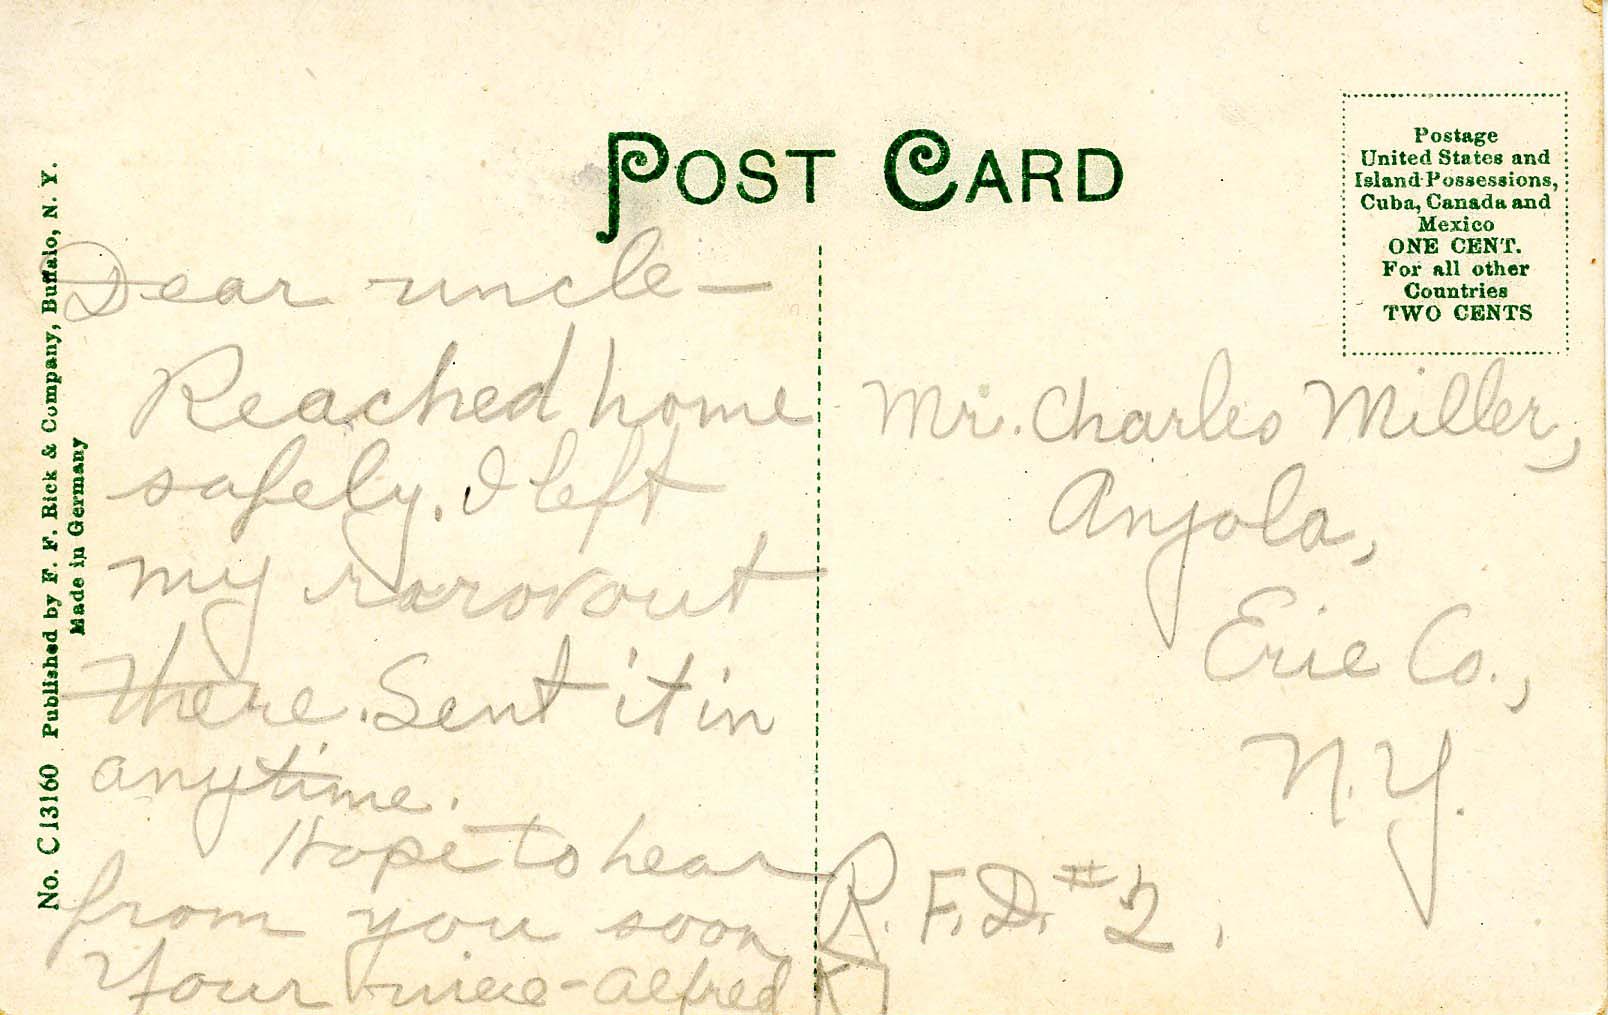 POST CARD
Postage
United States and
Island Possessions,
Cuba, Canada and
Mexico
ONE CENT.
For all other
Countries
TWO CENTS
No. C 13160 Published by F. F. Rick & Company, Buffalo, N. Y.
Made in Germany
Dear uncle —
Reached home
safely. I left
my
there. Sent it in
anytime.
Hope to hear
from you soon
Your niece - Alfred K
Mr. Charles Miller,
Angola,
Erie Co.,
N.Y.
R. F. D. # 2.